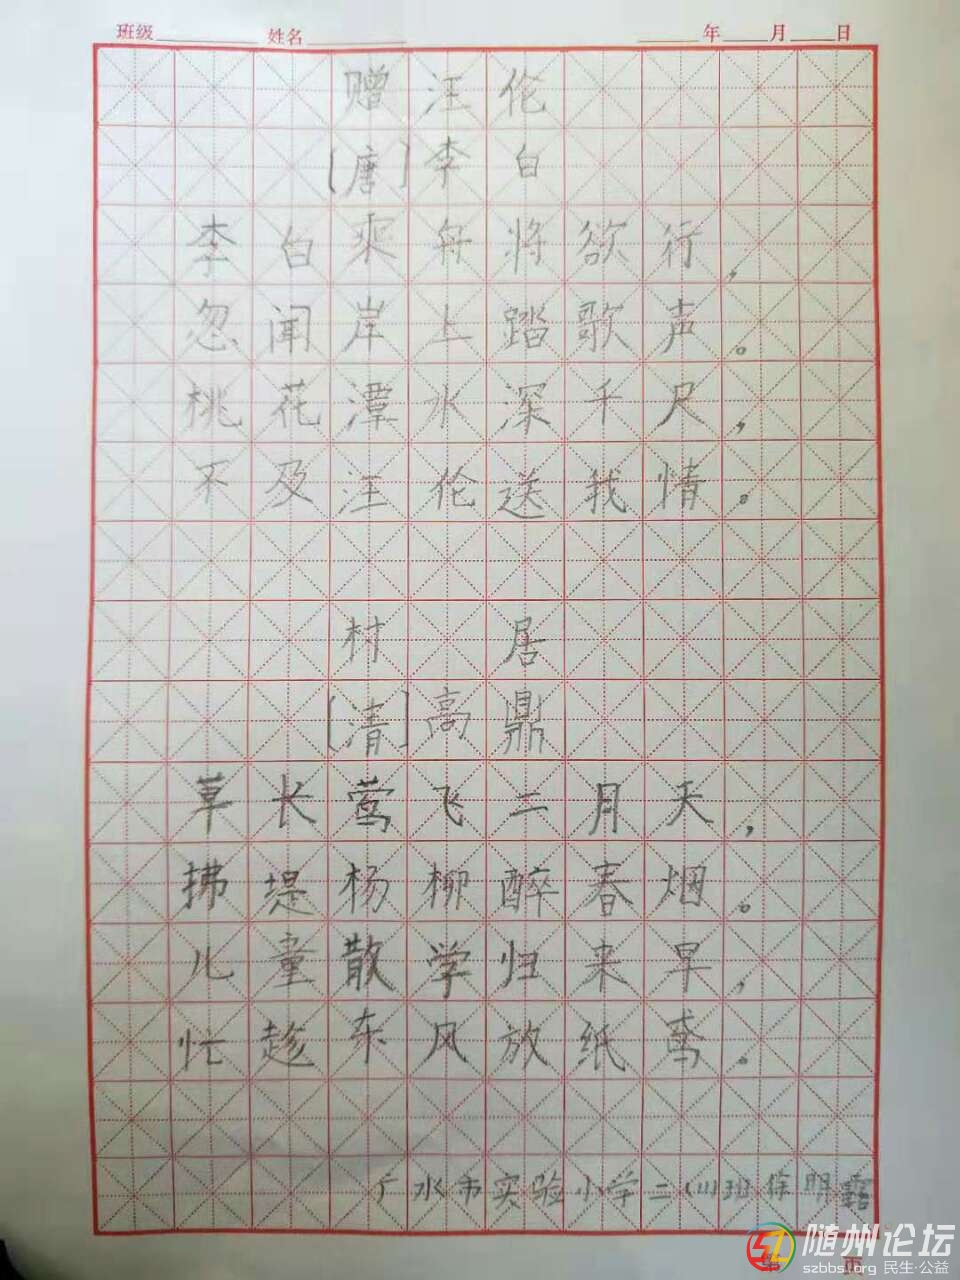 班级 姓名 年 月 日
赠汪伦
[唐]李白
李白乘舟将欲行，
忽闻岸上踏歌声。
桃花潭水深千尺，
不及汪伦送我情。
村居
[清]高鼎
草长莺飞二月天，
拂堤杨柳醉春烟。
儿童散学归来早，
忙趁东风放纸鸢。
广水市实验小学二(11)班徐明露
随州论坛
szbbs.org 民生·公益